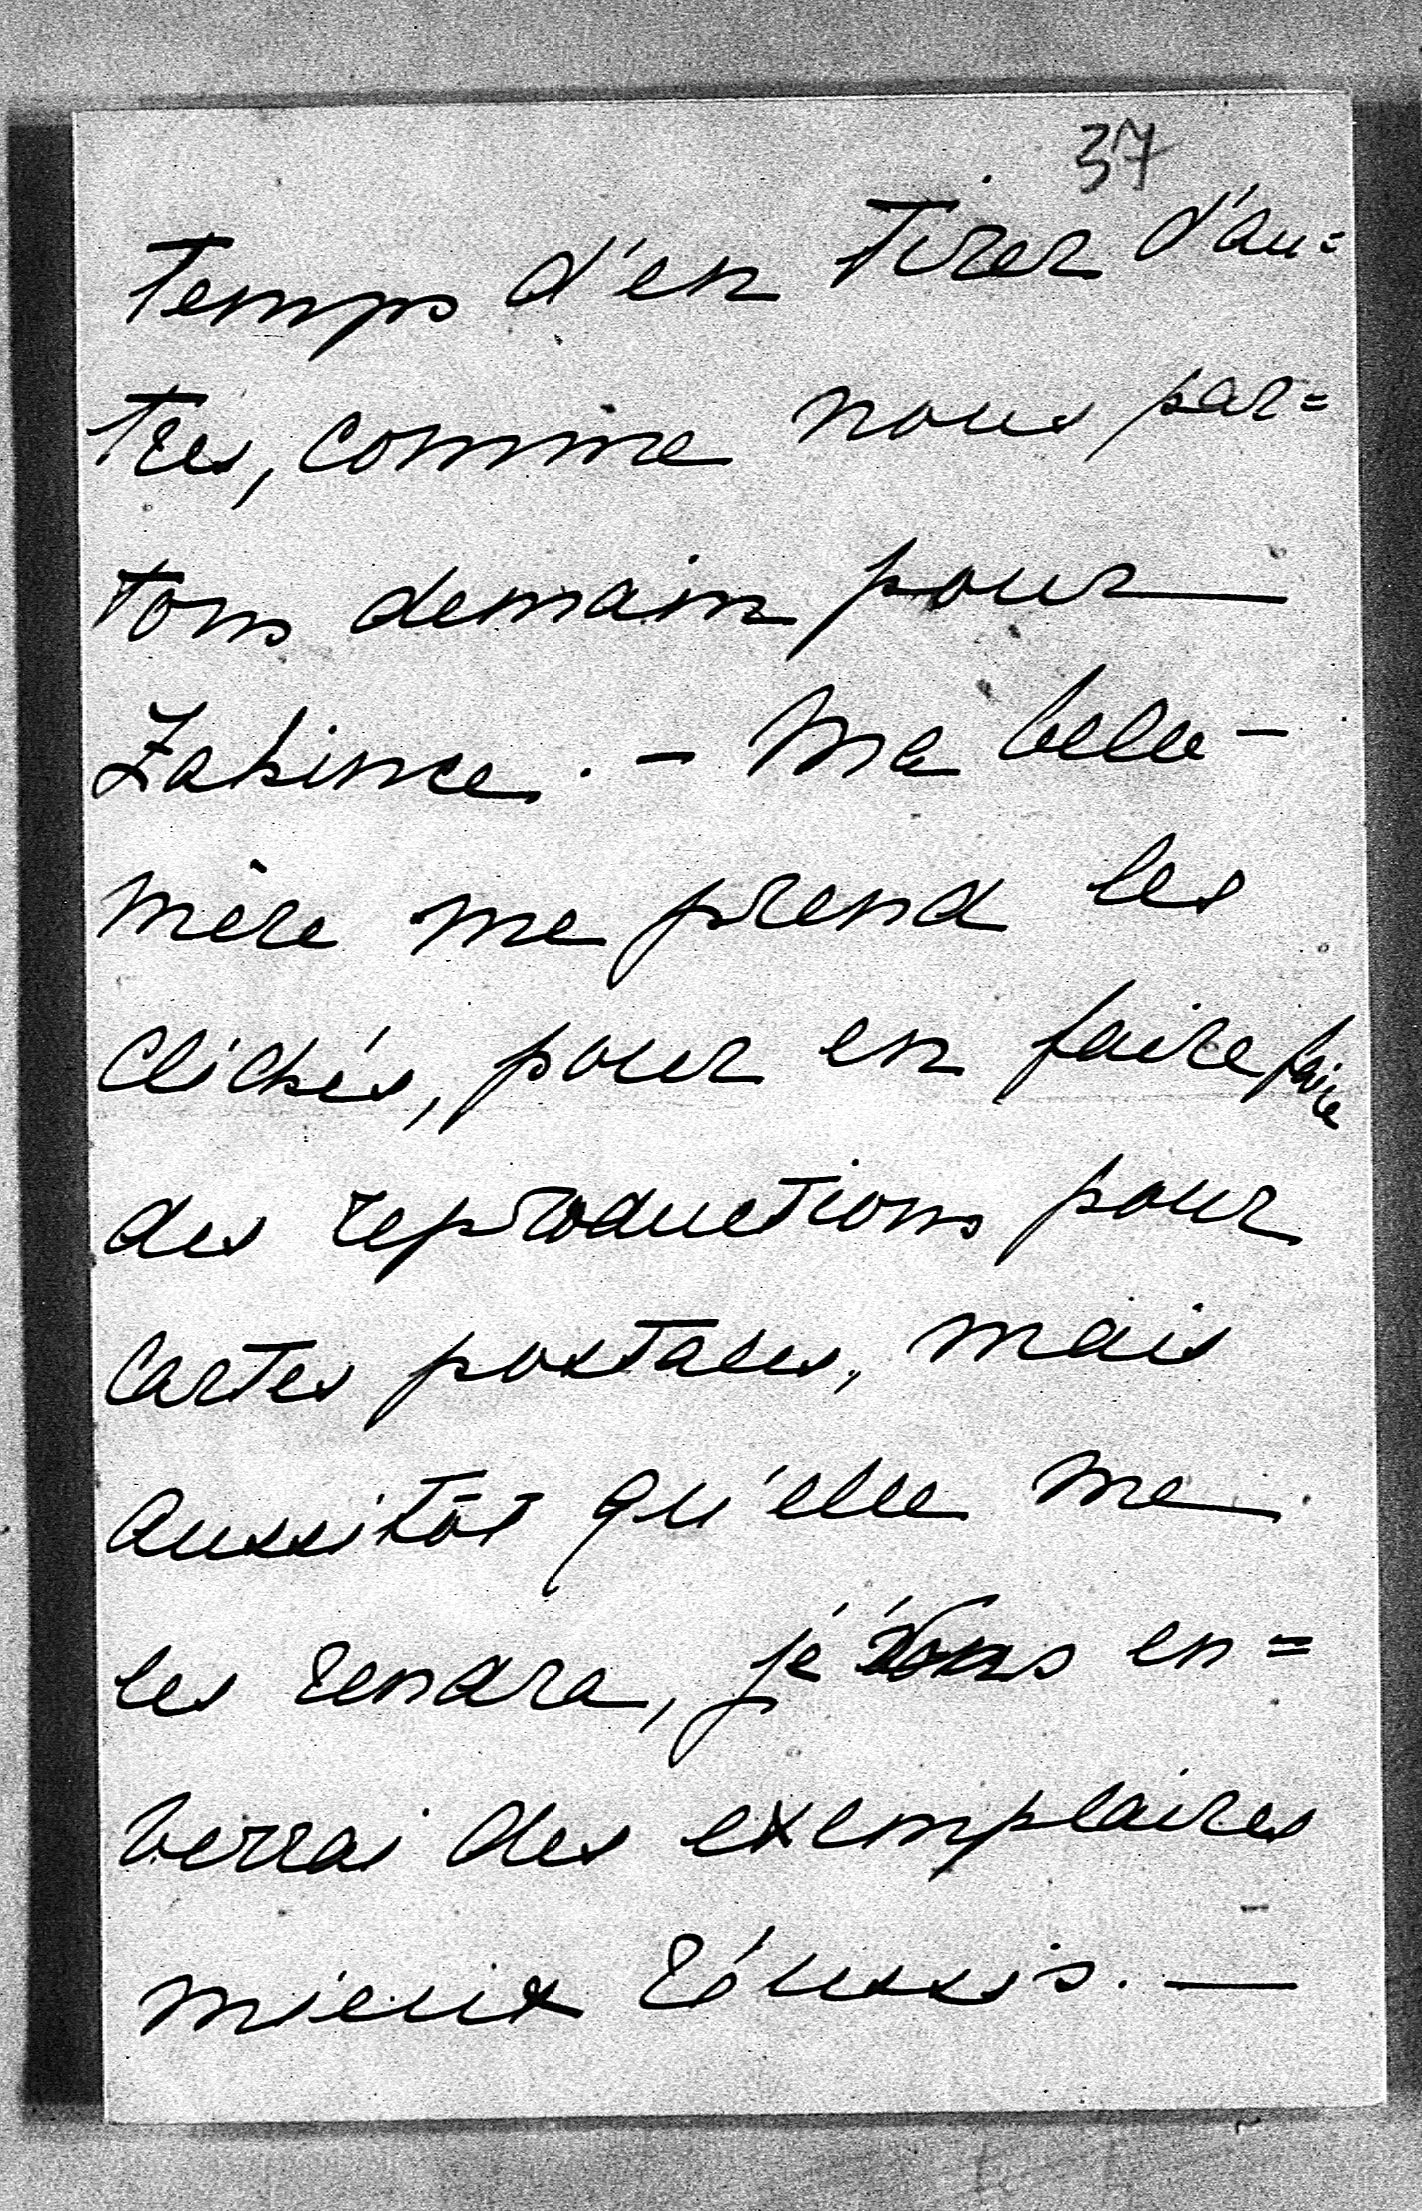 37
temps d'en tirer d'au=
tres, comme nous par=
tons demain pour
Zakince. - Ma belle-
mère me prend les
clichés, pour en faire faire
des reproductions pour
cartes postales, mais
aussitôt qu'elle me
les rendra, je vous en=
verrai des exemplaires
mieux réussis. —